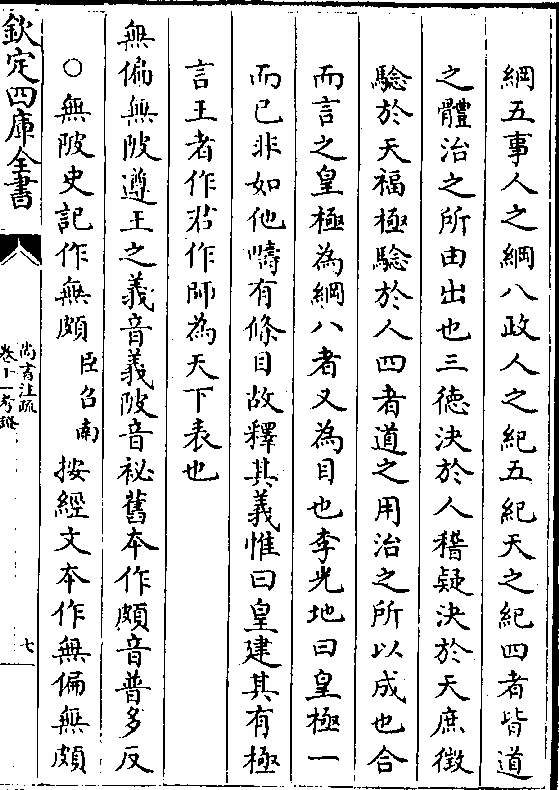 綱五事人之綱八政人之紀五紀天之紀四者皆道
之體治之所由出也三德決於人稽疑決於天庶徵
驗於天福極驗於人四者道之用治之所以成也合
而言之皇極為綱八者又為目也李光地曰皇極一
而已非如他疇有條目故釋其義惟曰皇建其有極
言王者作君作師為天下表也
無偏無陂遵王之義音義陂音祕舊本作頗音普多反
○無陂史記作無頗臣召南按經文本作無偏無頗
欽定四庫全書
尚書注疏
卷十一考證
七